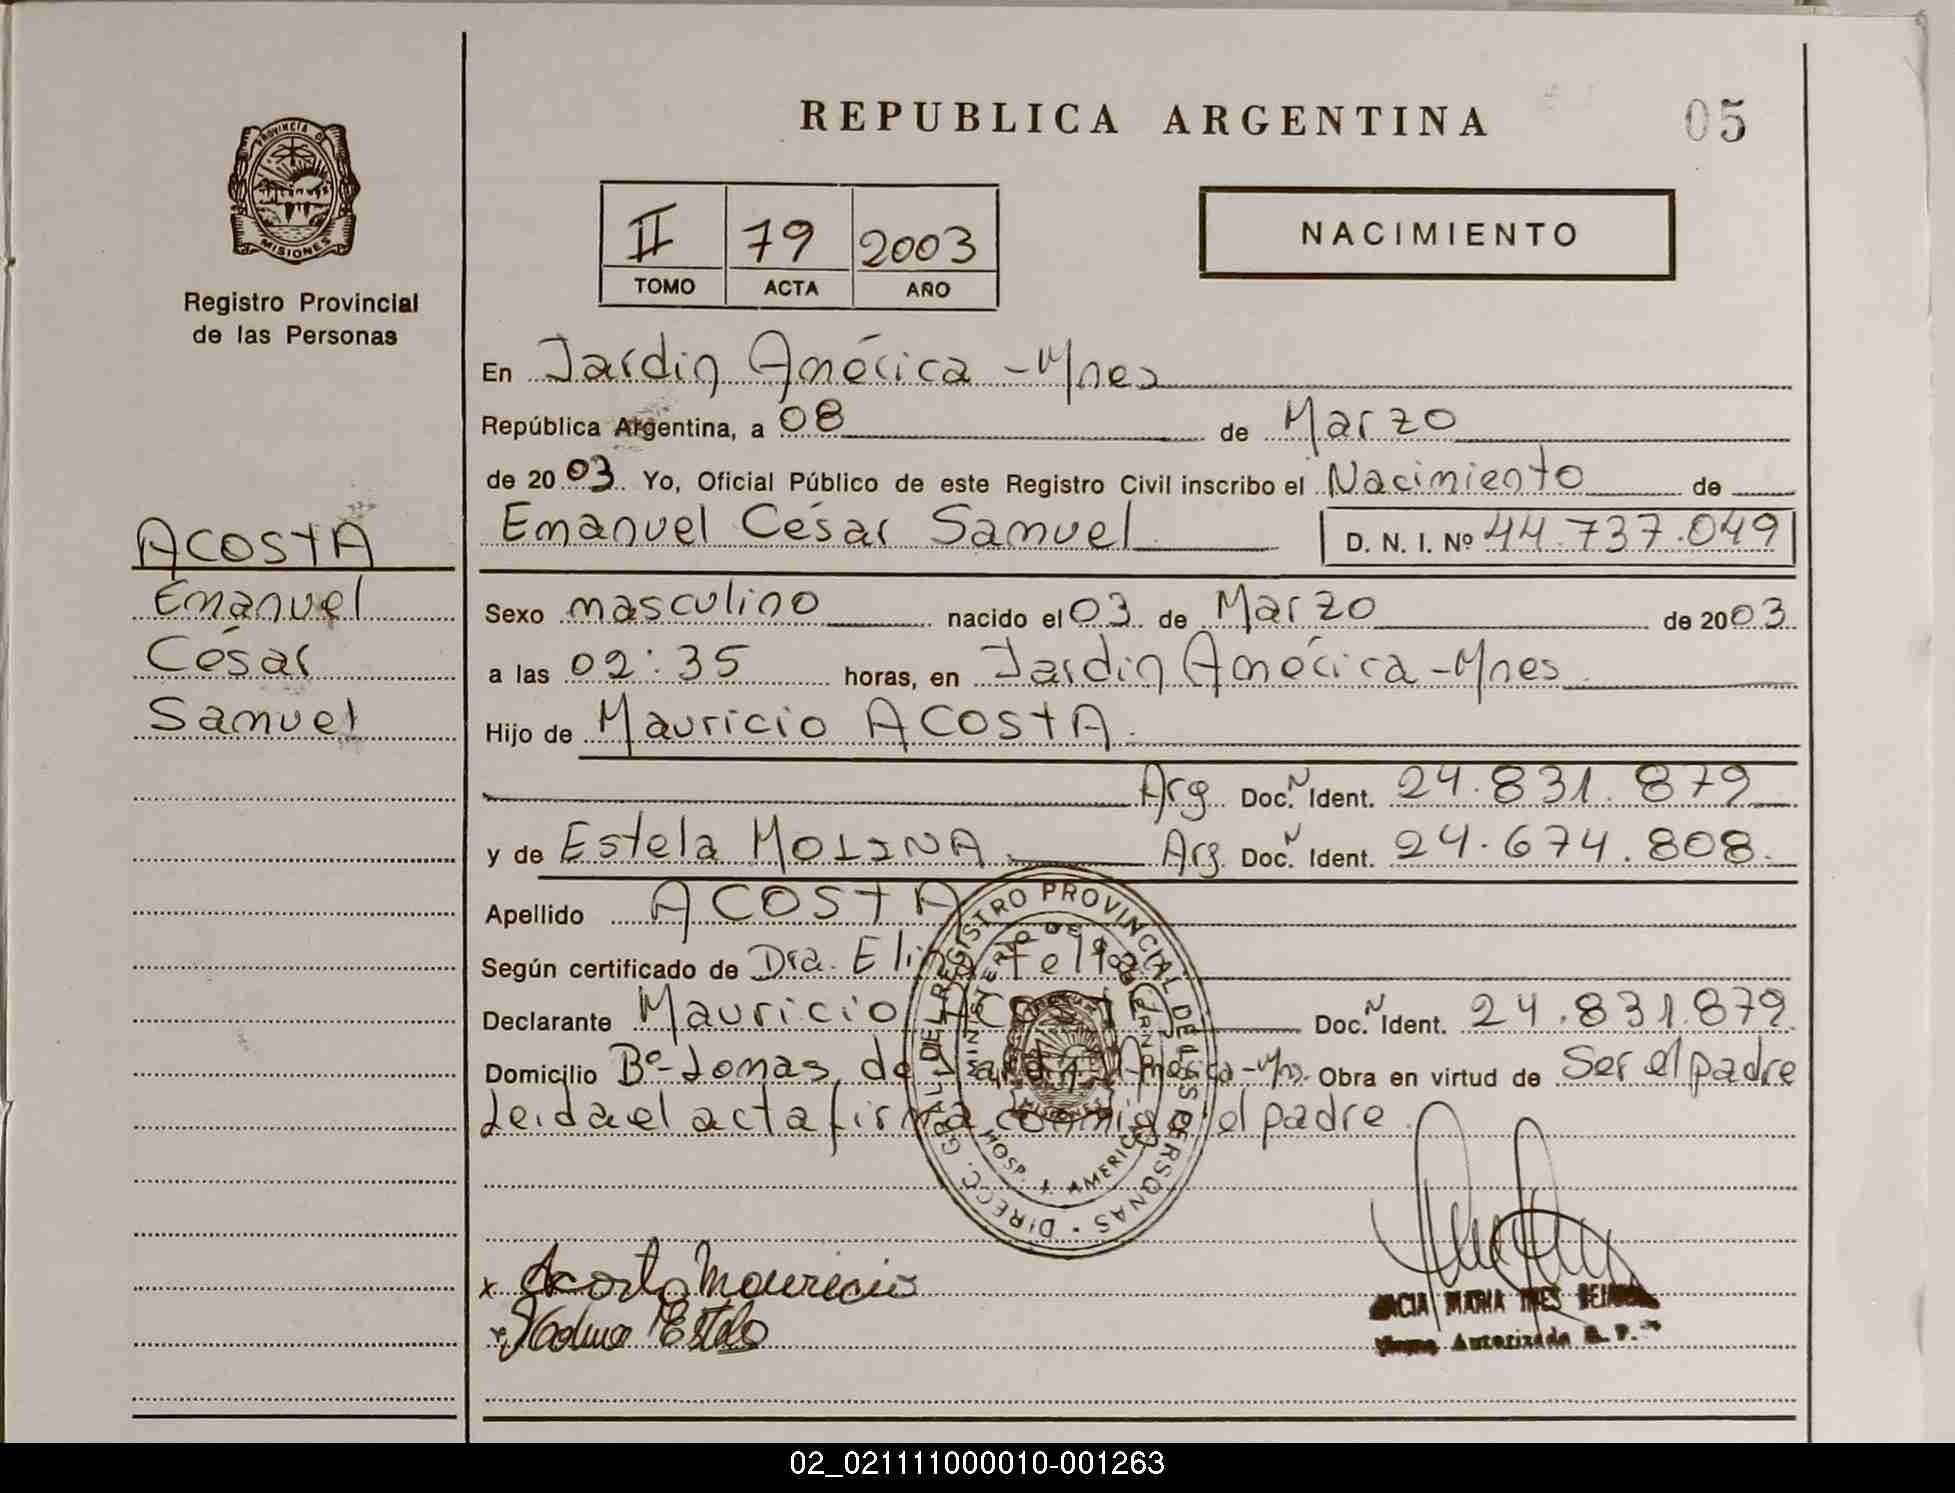 REPUBLICA ARGENTINA
05
PROVINCIA DE
MISIONES
Registro Provincial
de las Personas
II 79 2003
TOMO ACTA AÑO
NACIMIENTO
En Jardin América - Mnes
República Argentina, a 08 de Marzo
de 2003 Yo, Oficial Público de este Registro Civil inscribo el Nacimiento de
Emanuel César Samuel D. N. I. Nº 44.737.049
ACOSTA
Emanuel
César
Samuel
Sexo masculino nacido el 03 de Marzo de 2003
a las 02:35 horas, en Jardin América - Mnes
Hijo de Mauricio ACOSTA
Arg. Doc. N Ident. 24.831.879
y de Estela MOLINA Arg. Doc. N Ident. 24.674.808
Apellido ACOSTA
Según certificado de Dra.
Declarante Mauricio ACOSTA Doc. N Ident. 24.831.879
Domicilio Bº Lomas de Jardin América - Mns. Obra en virtud de Ser el padre
Leida el acta firma conmigo el padre
DIRECC. GRAL. DEL REGISTRO PROVINCIAL DE LAS PERSONAS
MINISTERIO DE GOBIERNO
HOSP. AMERICA
MISIONES
x Acosta Mauricio
Estela
MARIA
Autorizada R. P.
02_021111000010-001263